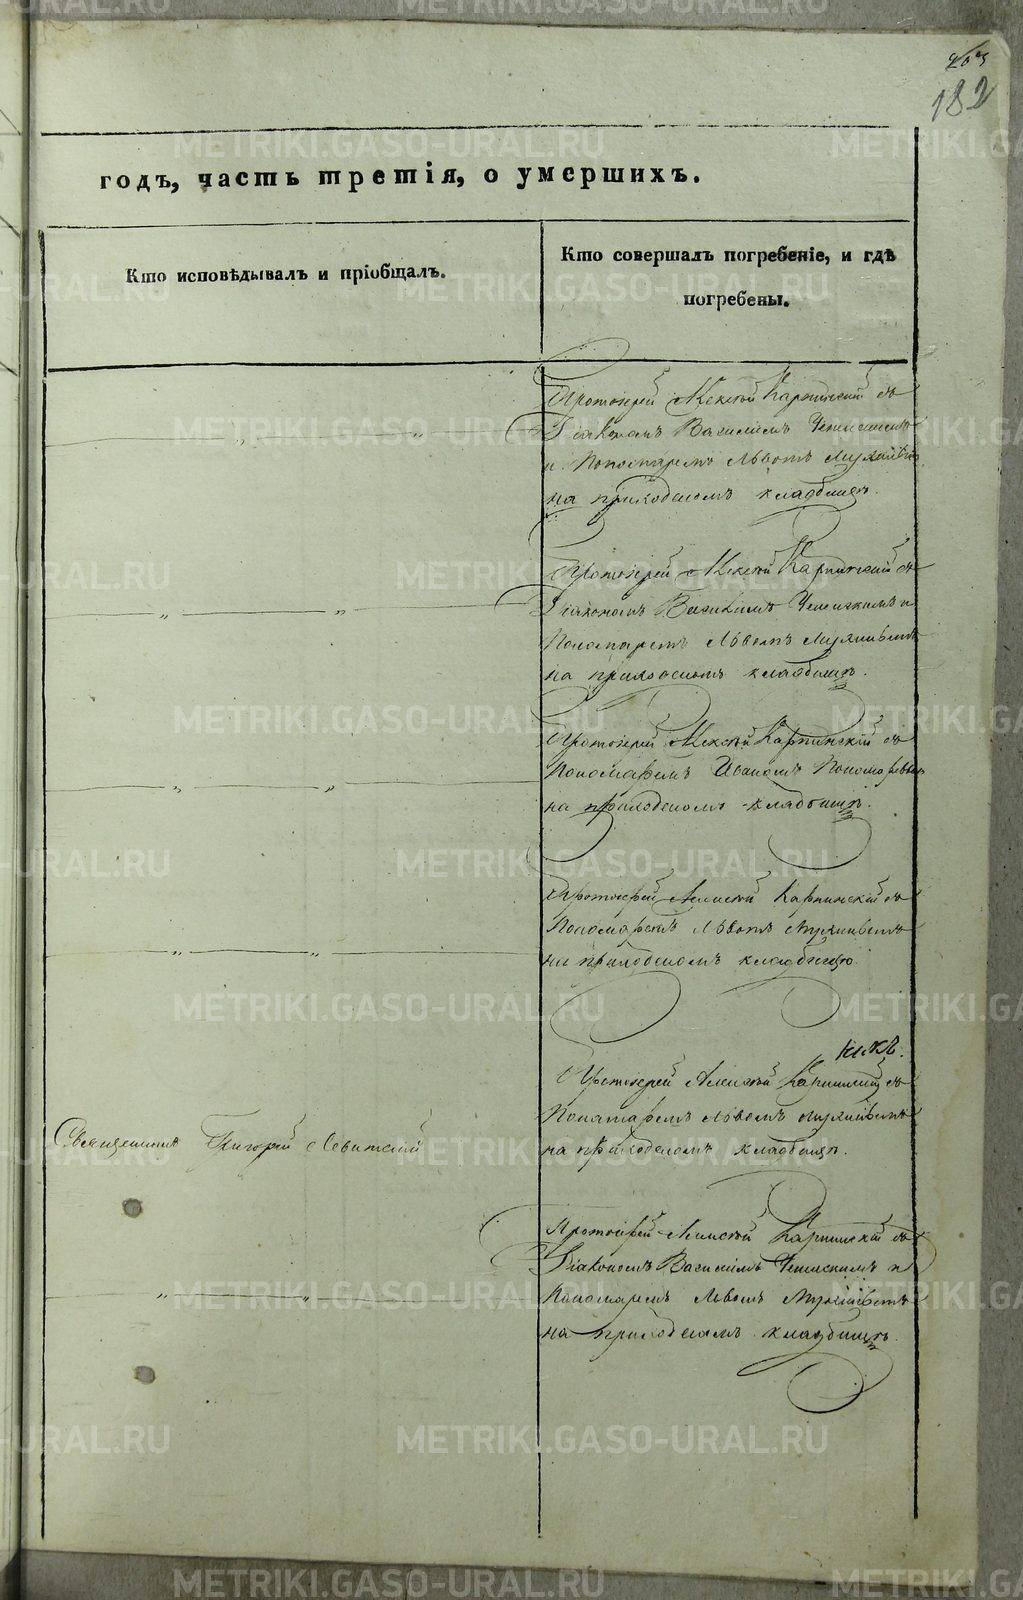 182
годъ, часть третія, о умершихъ.
Кто исповѣдывалъ и пріобщалъ.
Кто совершалъ погребеніе, и гдѣ
погребены.
Протоіерей Алексѣй Карпинскій съ
Діакономъ Василіемъ
и Пономаремъ Львомъ
на приходскомъ кладбищѣ.
Протоіерей Алексѣй Карпинскій съ
Діакономъ Василіемъ
Пономаремъ Львомъ
на приходскомъ кладбищѣ.
Протоіерей Алексѣй Карпинскій съ
Пономаремъ Иваномъ
на приходскомъ кладбищѣ.
Протоіерей Алексѣй Карпинскій съ
Пономаремъ Львомъ
на приходскомъ кладбищѣ
Протоіерей Алексѣй Карпинскій съ
Пономаремъ Львомъ
Священникъ Григорій Левитскій
на приходскомъ кладбищѣ.
Протоіерей Алексѣй Карпинскій съ
Діакономъ Василіемъ и
Пономаремъ Львомъ
на приходскомъ кладбищѣ.
METRIKI.GASO-URAL.RU